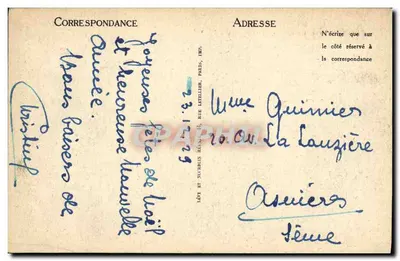 CORRESPONDANCE
ADRESSE
N'écrire que sur
le côté réservé à
la correspondance
23.12.29
Joyeuses fêtes de Noël
et heureuse Nouvelle
Année.
Bons baisers de
LÉVY ET NEURDEIN RÉUNIS, 44, RUE LETELLIER, PARIS, IMP.
Mme Quinier
20 Av. La Lauzière
Asnières
Seine